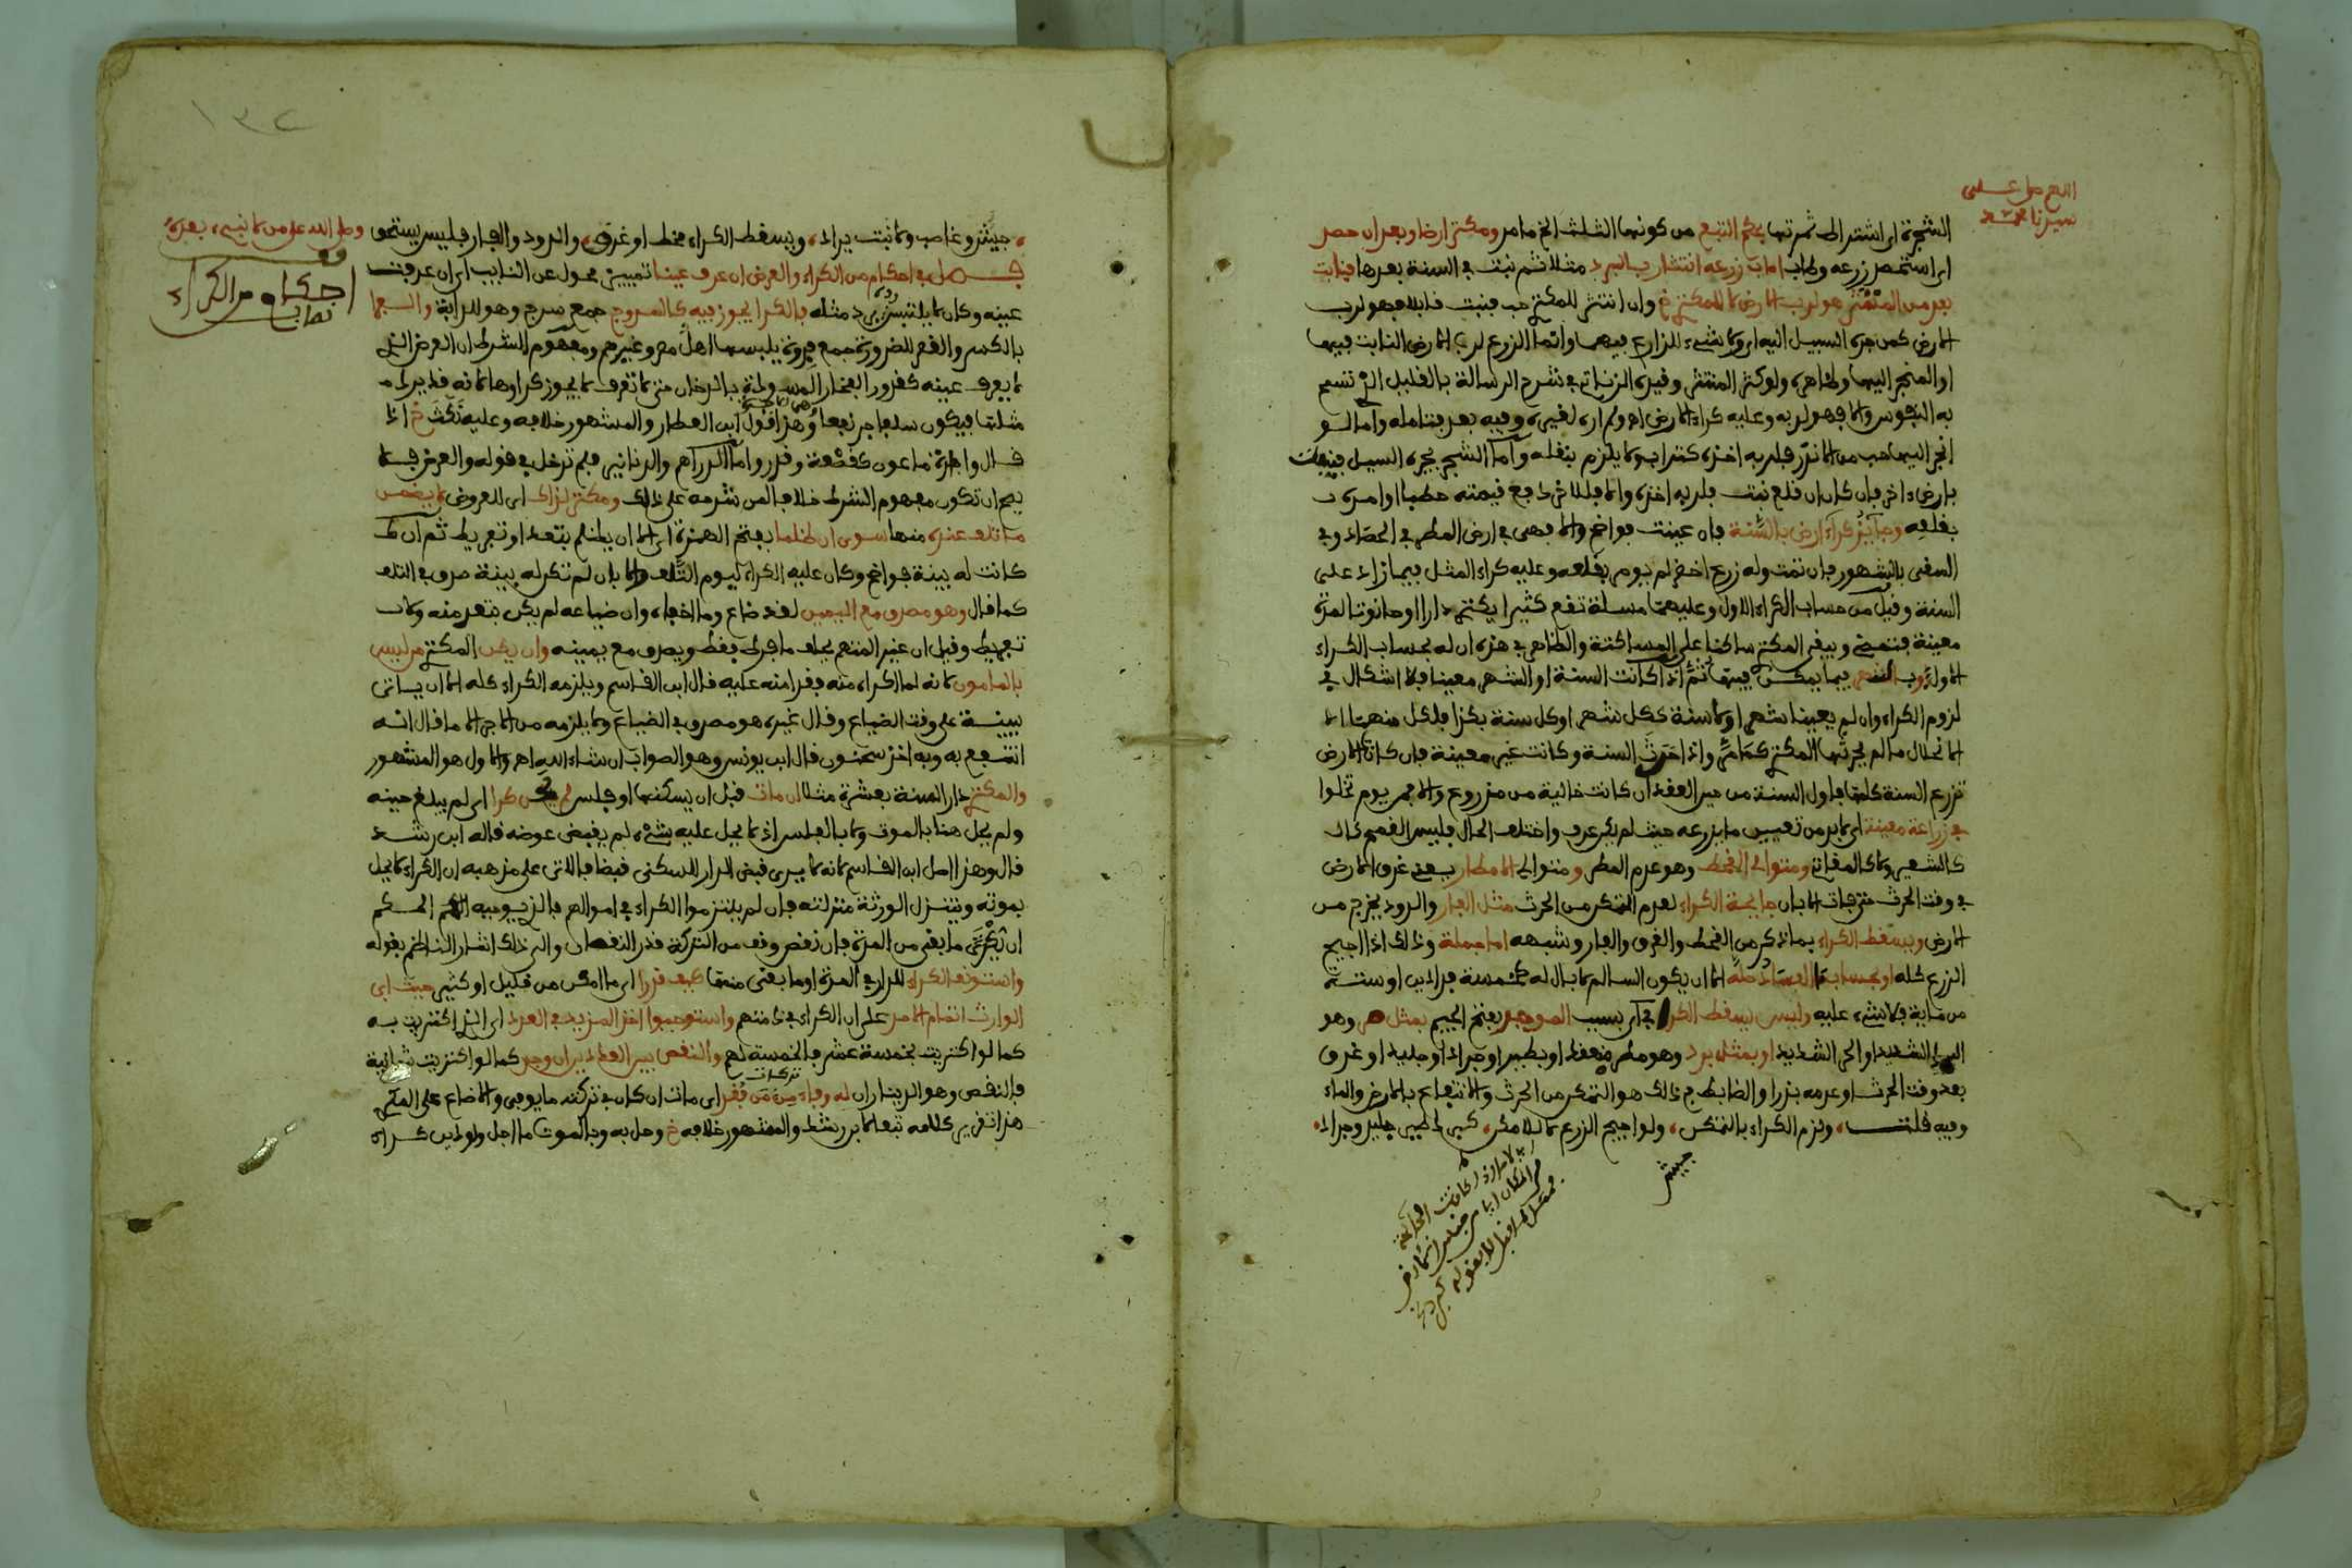 اللهم صل على
سيدنا محمد
الشجرة اى اشتراط ثمرتها بحكم التبع من كونها الثلث الخ ما مر ومكتر ارضا وبعد ان حصد
اى استحصد زرعه وطاب اصاب زرعه انتشار بالبرد مثلا ثم نبت في السنة بعدها فنابت
بعد من المنتثر هو لرب الارض لا للمكتري خ وان انتثر للمكتري حب فنبت قابلا فهو لرب
الارض كمن جره السيل اليه اى ولا شيء للزارع فيهما وانما الزرع لرب الارض النابت فيها
او المنجر اليها وظاهره ولو كثر المنتثر وقيده الزناتي في شرح الرسالة بالقليل الذي تسمح
به النفوس والا فهو لربه وعليه كراء الارض اهـ ولم اره لغيره وفيه بعد فتامله واما لو
انجر اليها حب من الاندر فلربه اخذه كتراب ولا يلزم بنقله واما الشجر يجره السيل فينبت
بارض اخرى فان كان ان قلع نبت فلربه اخذه والا فللاخر دفع قيمته حطبا او امره
بقلعه وجايز كراء ارض بالسنة فان عينت فواضح والا فهي في ارض المطر في الحصاد وفي
السقي بالشهور فان تمت وله زرع اخضر لم يومر بقلعه وعليه كراء المثل فيما زاد على
السنة وقيل من حساب الكراء الاول وعليهما مسلة تقع كثيرا يكتري دارا او حانوتا لمدة
معينة فتمضي ويبقى المكتري ساكنا على المساكتة والظاهر في هذه ان له بحساب الكراء
الاول وب الشهر فيما يمكن فيها ثم اذا كانت السنة او الشهر معينا فلا اشكال في
لزوم الكراء وان لم يعينا شهرا ولا سنة ككل شهر او كل سنة بكذا فلكل منهما
الانحلال ما لم يحرثها المكتري كما مر واذا حرث السنة وكانت غير معينة فان كانت الارض
تزرع السنة كلها فاول السنة من حين العقد ان كانت خالية من مزروع والا فمن يوم تخلوا
في زراعة معينة اى لا بد من تعيين ما يزرعه حيث لم يكن عرف واختلف الحال فليس القمح
كالشعير ولا كالمقاثي ومتوالي القحط وهو عدم المطر ومتوالي الامطار بمعنى غرق الارض
في وقت الحرث حتى فات الابان جايحة الكراء لعدم التمكن من الحرث مثل الفار والدود يخرج من
الارض ويسقط الكراء بما ذكر من القحط والغرق والفار وشبهه اما جملة وذلك اذا اجيح
الزرع كله او بحساب ما الفساد حله الا ان يكون السالم لا بال له كخمسة فدادين او ستة
من ماية فلا شيء عليه وليس يسقط الكرا في اى بسبب الموجر بفتح الجيم بمثل صر وهو
البرد الشديد او الحر الشديد او بمثل برد وهو مطر منعقد او بطير او جراد او جليد او غرق
بعد وقت الحرث او عدمه بذرا والضابط في ذلك هو التمكن من الحرث والانتفاع بالارض والماء
وفيه قلت، ولزم الكراء بالتمكن، ولو اجيح الزرع لا بالامكن، كبرد طير جليد وجراد
جيش
وصلى الله على من لا نبي بعده
جيش وغاصب ولا نبت يراد، ويسقط الكراء قحط او غرق، والدود والفار فليس يستحق
فصل في احكام من الكراء والعرض ان عرف عينا تمييز محول عن النايب اى ان عرفت
احكام من الكراء
عينه وكان لا يلتبس برد مثله فالكرا يجوز فيه كالسروج جمع سرج وهو للدابة والسجما
بالكسر والفتح للضرورة جمع فروة يلبسها اهل مصر وغيرهم ومفهوم الشرط ان العرض الذي
لا يعرف عينه كقدور الفخار المسودة بالدخان حتى لا تعرف لا يجوز كراوها لانه قد يرد
مثلها فيكون سلفا جر نفعا وهذا قول ابن العطار والمشهور خلافه وعليه نكت خ اذا
قال واجارة ماعون كقصعة وقدر واما الدراهم والدنانير فلم تدخل في قوله والعرض فلا
يصح ان تكون مفهوم الشرط خلافا لمن شرحه على ذلك ومكتر لذاك اى للعروض لا يضمن
ما تلف عنده منها سوى ان ظلما بفتح الهمزة اى الا ان يظلم بتعد او تفريط ثم ان
كانت له بينة فواضح وكان عليه الكراء ليوم التلف والا بان لم تكن له بينة صدق في التلف
كما قال وهو مصدق مع اليمين لقد ضاع وما اخفاه وان ضياعه لم يكن بتعد منه ولا
تفريط وقيل ان غير المتهم يحلف ما فرط فقط ويصدق مع يمينه وان يكن المكتري ليس
بالمامون لانه لما اكراه منه فقد امنه عليه قال ابن القاسم ويلزمه الكراء كله الا ان ياتي
ببينة على وقت الضياع وقال غيره هو مصدق في الضياع ولا يلزمه من الاجر الا ما قال انه
انتفع به وبه اخذ سحنون قال ابن يونس وهو الصواب ان شاء الله اهـ والاول هو المشهور
والمكتري دار السنة بعشرة مثلا ان مات قبل ان يسكنها او فلس لم يحن كرا اى لم يبلغ حينه
ولم يحل هنا بالموت ولا بالفلس اذ لا يحل عليه بشيء لم يقبض عوضه قاله ابن رشد
قال وهذا اصل ابن القاسم لانه لا يرى قبض الدار للسكنى قبضا فالاتي على مذهبه ان الكراء لا يحل
بموته وتنزل الورثة منزلته فان لم يلتزموا الكراء في اموالهم فالذي يوجبه الحكم
ان تكرى ما بقي من المدة فان نقص وقف من التركة قدر النقصان والى ذلك اشار الناظم بقوله
واستونف الكراء للدار في المدة او ما بقى منها كيف قدرا اى ما امكن من قليل او كثير حيث ابى
الوارث اتمام الامد على ان الكراء في ذمتهم واستوجبوا اخذ المزيد في العدد اى الذي اكتريت به
كما لو اكتريت بخمسة عشر فالخمسة لهم والنقص بين العددين ان وجد كما لو اكتريت ثمانية
فالنقص وهو الديناران له وفاء من تركات من فقد اى مات ان كان في تركته ما يوفي والا ضاع على المكري
هذا تقرير كلامه تبعا لابن رشد والمشهور خلافه خ وحل به وبالموت ما اجل ولو دين كراء